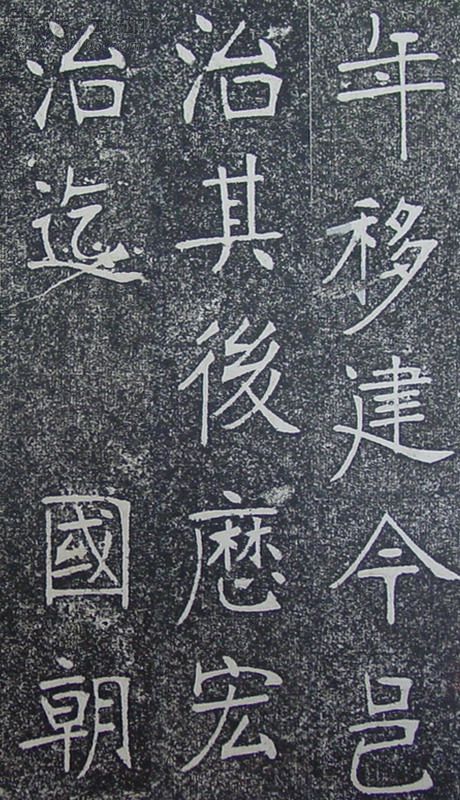 年移建今邑
治其後歷宏
治迄 國朝